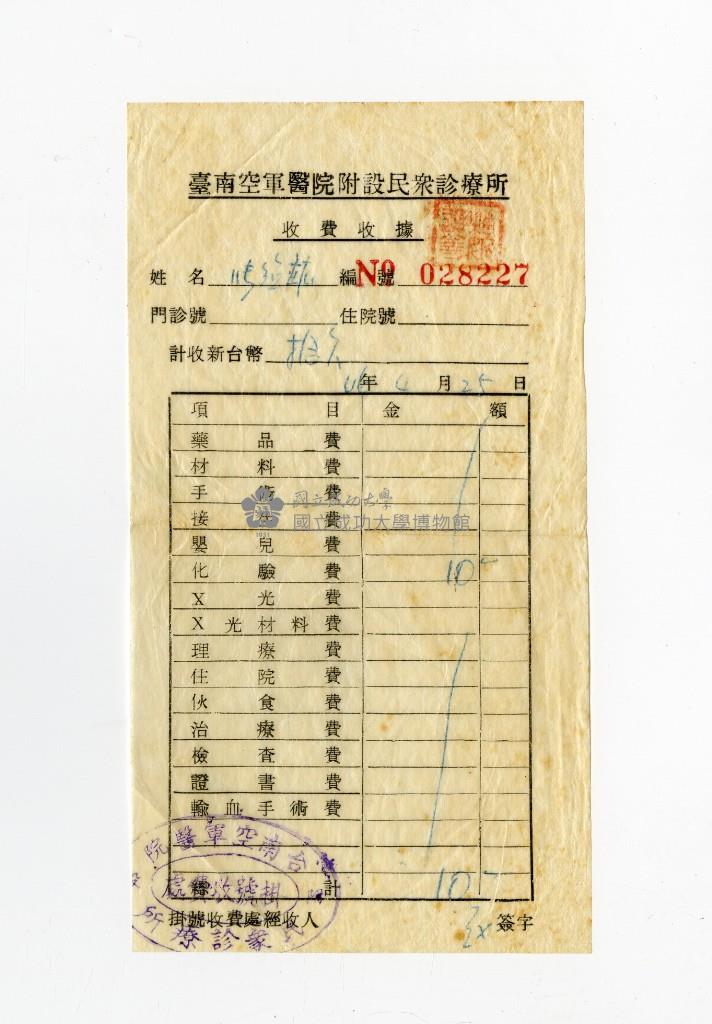 臺南空軍醫院附設民衆診療所
收費收據
姓名 編號 No 028227
門診號 住院號
計收新台幣 拾元
46年 4月 25日
項目 金額
藥品費
材料費
手術費
接生費
嬰兒費
化驗費 10-
X光費
X光材料費
理療費
住院費
伙食費
治療費
檢查費
證書費
輸血手術費
總計 10-
掛號收費處經收人 簽字
台南空軍醫院
掛號收費處
民衆診療所
國立成功大學
國立成功大學博物館
1931